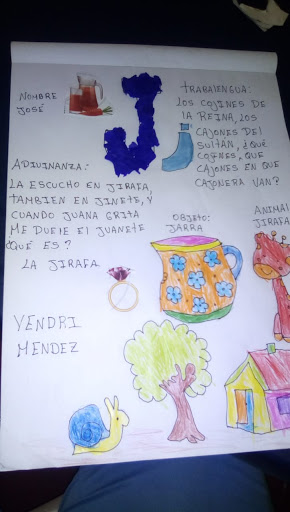 NOMBRE
JOSÉ
J
j
TRABALENGUA:
LOS COJINES DE
LA REINA, LOS
CAJONES DEL
SULTÁN, ¿QUÉ
COJINES, QUE
CAJONES EN QUE
CAJONERA VAN?
ADIVINANZA:
LA ESCUCHO EN JIRAFA,
TAMBIEN EN JINETE, Y
CUANDO JUANA GRITA
ME DUELE EL JUANETE
¿QUÉ ES?
LA JIRAFA
OBJETO:
JARRA
ANIMAL
JIRAFA
YENDRI
MENDEZ